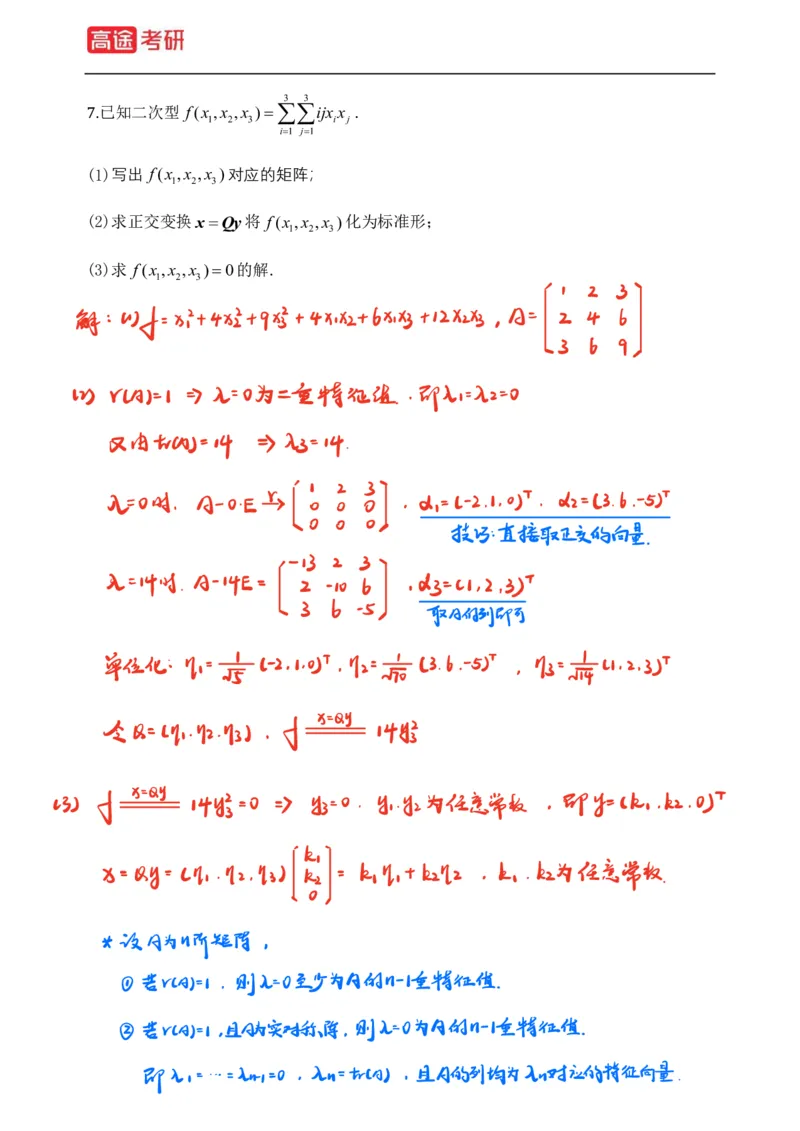 高途考研
7.已知二次型 f(x₁,x₂,x₃)=∑_{i=1}^{3}∑_{j=1}^{3} ijx_i x_j .
(1)写出 f(x₁,x₂,x₃)对应的矩阵;
(2)求正交变换 x=Qy 将 f(x₁,x₂,x₃)化为标准形;
(3)求 f(x₁,x₂,x₃)=0的解.
解: (1) f=x₁²+4x₂²+9x₃²+4x₁x₂+6x₁x₃+12x₂x₃ , A= [1 2 3; 2 4 6; 3 6 9]
(2) r(A)=1 ⇒ λ=0为二重特征值. 即λ₁=λ₂=0
又由tr(A)=14 ⇒ λ₃=14.
λ=0时. A-0·E →r [1 2 3; 0 0 0; 0 0 0] . α₁=(-2.1.0)ᵀ . α₂=(3.6.-5)ᵀ
技巧:直接取正交的向量.
λ=14时. A-14E= [-13 2 3; 2 -10 6; 3 6 -5] . α₃=(1,2,3)ᵀ
取A的列即可
单位化: η₁=1/√5 (-2.1.0)ᵀ . η₂=1/√70 (3.6.-5)ᵀ , η₃=1/√14 (1,2.3)ᵀ
令Q=(η₁.η₂.η₃) . f ==x=Qy== 14y₃²
(3) f ==x=Qy== 14y₃²=0 ⇒ y₃=0 . y₁.y₂为任意常数 , 即y=(k₁.k₂.0)ᵀ
x=Qy=(η₁.η₂.η₃) [k₁; k₂; 0] = k₁η₁+k₂η₂ . k₁.k₂为任意常数.
* 设A为n阶矩阵 ,
① 若r(A)=1 , 则λ=0至少为A的n-1重特征值.
② 若r(A)=1 ,且A为实对称阵, 则λ=0为A的n-1重特征值.
即λ₁=…=λₙ₋₁=0 , λₙ=tr(A) , 且A的列均为λₙ对应的特征向量.